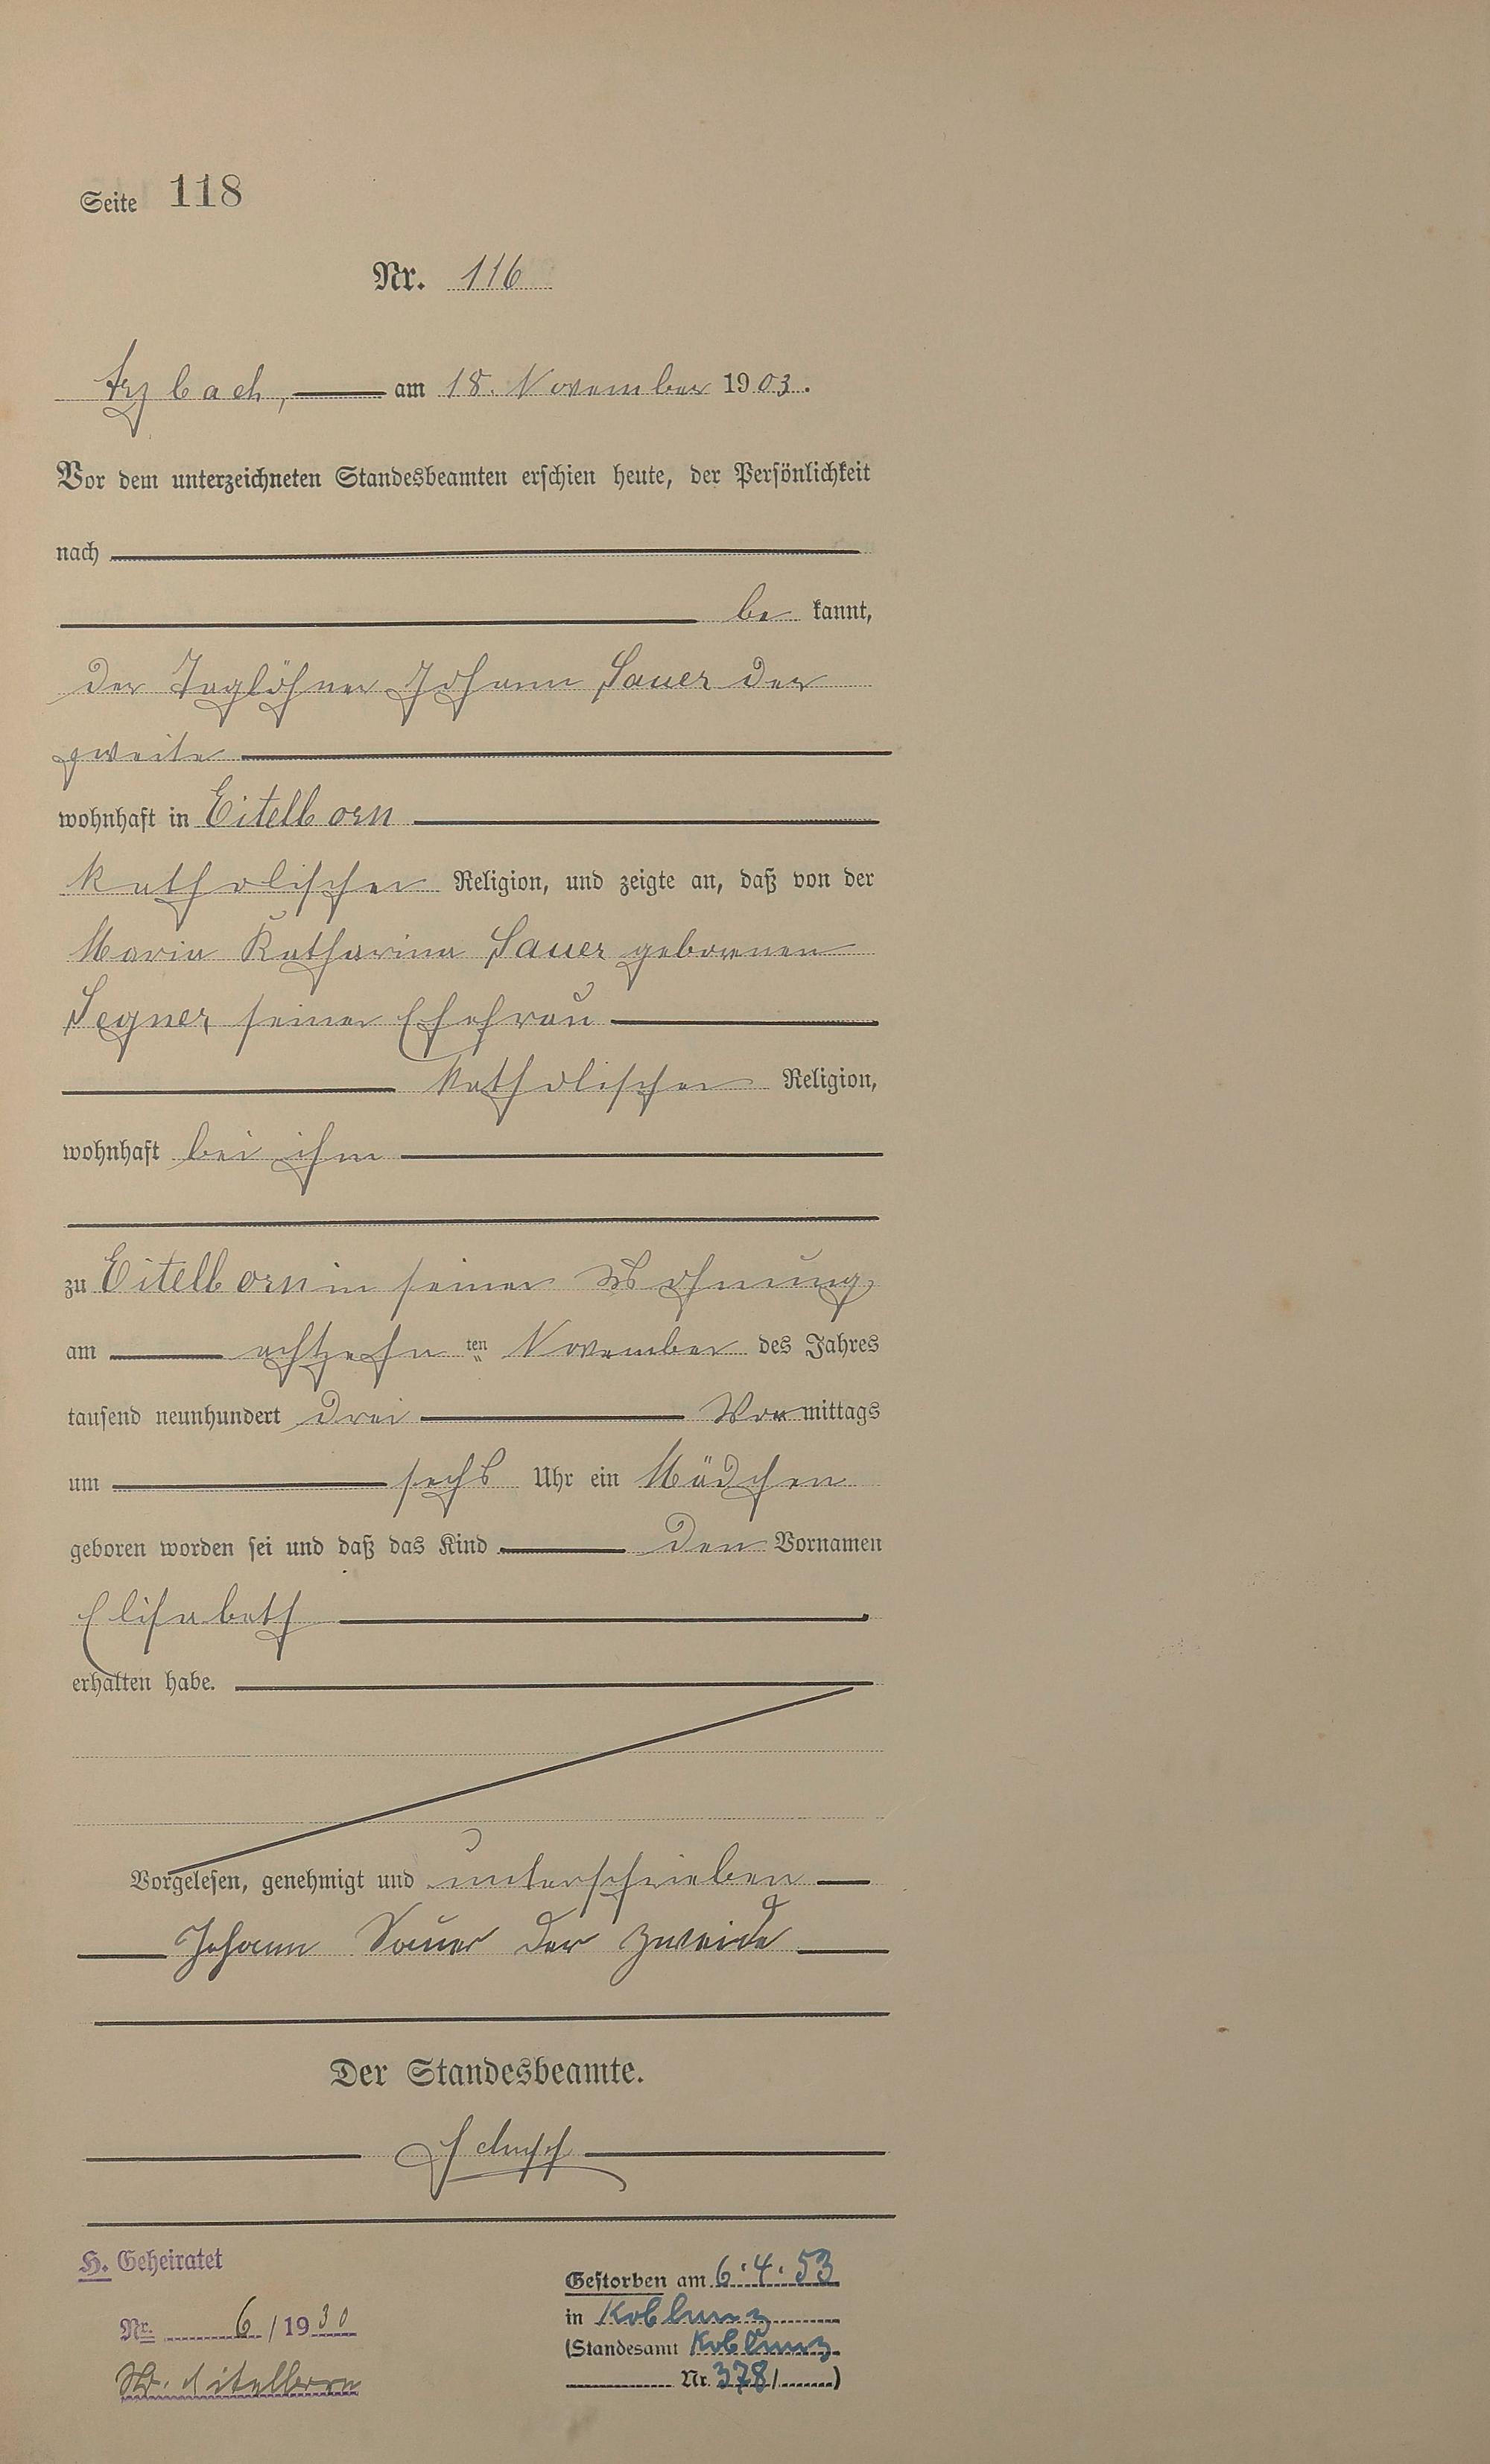 Seite 118
Nr. 116
Arzbach, am 18. November 1903.
Vor dem unterzeichneten Standesbeamten erschien heute, der Persönlichkeit
nach
be kannt,
der Taglöhner Johann Sauer der
zweite
wohnhaft in Eitelborn
katholischer Religion, und zeigte an, daß von der
Maria Katharina Sauer geborenen
Segner, seiner Ehefrau
katholischer Religion,
wohnhaft bei ihm
zu Eitelborn in seiner Wohnung,
am achtzehn ten November des Jahres
tausend neunhundert drei Vormittags
um sechs Uhr ein Mädchen
geboren worden sei und daß das Kind den Vornamen
Elisabeth
erhalten habe.
Vorgelesen, genehmigt und unterschrieben
Johann Sauer der zweide
Der Standesbeamte.
Schupp
H. Geheiratet
Nr. 6/1930
Eitelborn
Gestorben am 6.4.53
in Koblenz
(Standesamt Koblenz
Nr. 378/ )